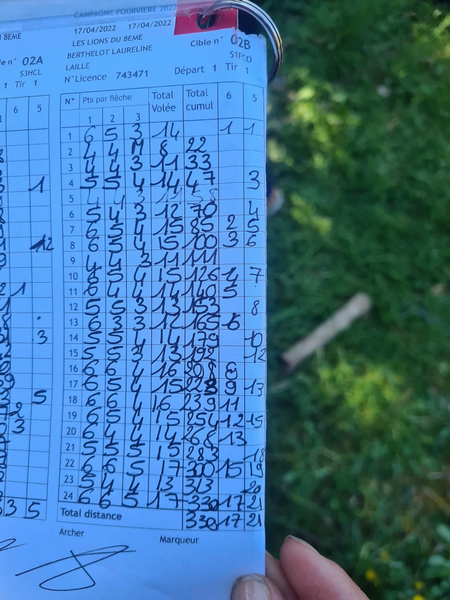 CAMPAGNE FOURVIERE 2022
17/04/2022 17/04/2022
LES LIONS DU 8EME
BERTHELOT LAURELINE
LAILLE
N°Licence 743471
Cible n° 02B
Départ 1 Tir 1
8EME
02A
53HCL
Tir 1
6 5
N° Pts par flèche Total Volée Total cumul 6 5
1 2 3
1 6 5 3 14 1 1
2 4 4 M 8 22
3 4 4 3 11 33
4 5 5 4 14 47 3
5
6 5 4 3 12 70 4
7 6 5 4 15 85 2 5
8 6 5 4 15 100 3 6
9 4 4 3 11 111
10 6 5 4 15 126 4 7
11 6 4 4 14 140 5
12 5 5 3 13 153 8
13 6 3 3 12 165 6
14 5 5 4 14 179 10
15 5 5 3 13 192 12
16 6 6 4 16 208 8
17 6 5 4 15 223 9 13
18 6 6 4 16 239 11
19 6 5 4 15 254 12 15
20 6 4 4 14 268 13
21 5 5 5 15 283 18
22 6 6 5 17 300 15 19
23 5 4 4 13 313 20
24 6 6 5 17 330 17 21
Total distance 330 17 21
3 5
Archer Marqueur